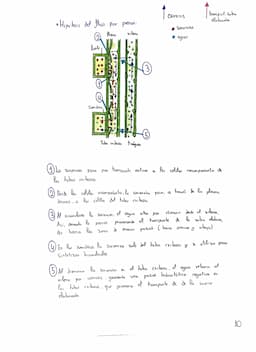 • Hipótesis del flujo por presión:
Floema
xilema
ósmosis
transporte activo
sacarosa
agua
Fuente
Sumidero
Tubo criboso
Tráquea
① La sacarosa pasa por transporte activo a la célula acompañante de
los tubos cribosos
② Desde la célula acompañante, la sacarosa pasa a través de los plasmo-
desmos a las células del tubo criboso
③ Al acumularse la sacarosa, el agua entra por ósmosis desde el xilema.
Así, aumenta la presión provocando el transporte de la savia elaborada
hacia las zonas de menor presión (hacia arriba y abajo)
④ En los sumideros la sacarosa sale del tubo criboso y se utiliza para
sintetizar
⑤ Al disminuir la sacarosa en el tubo criboso, el agua retorna al
xilema por ósmosis generando una presión hidrostática negativa en
los tubos cribosos que promueve el transporte de la savia
elaborada
10